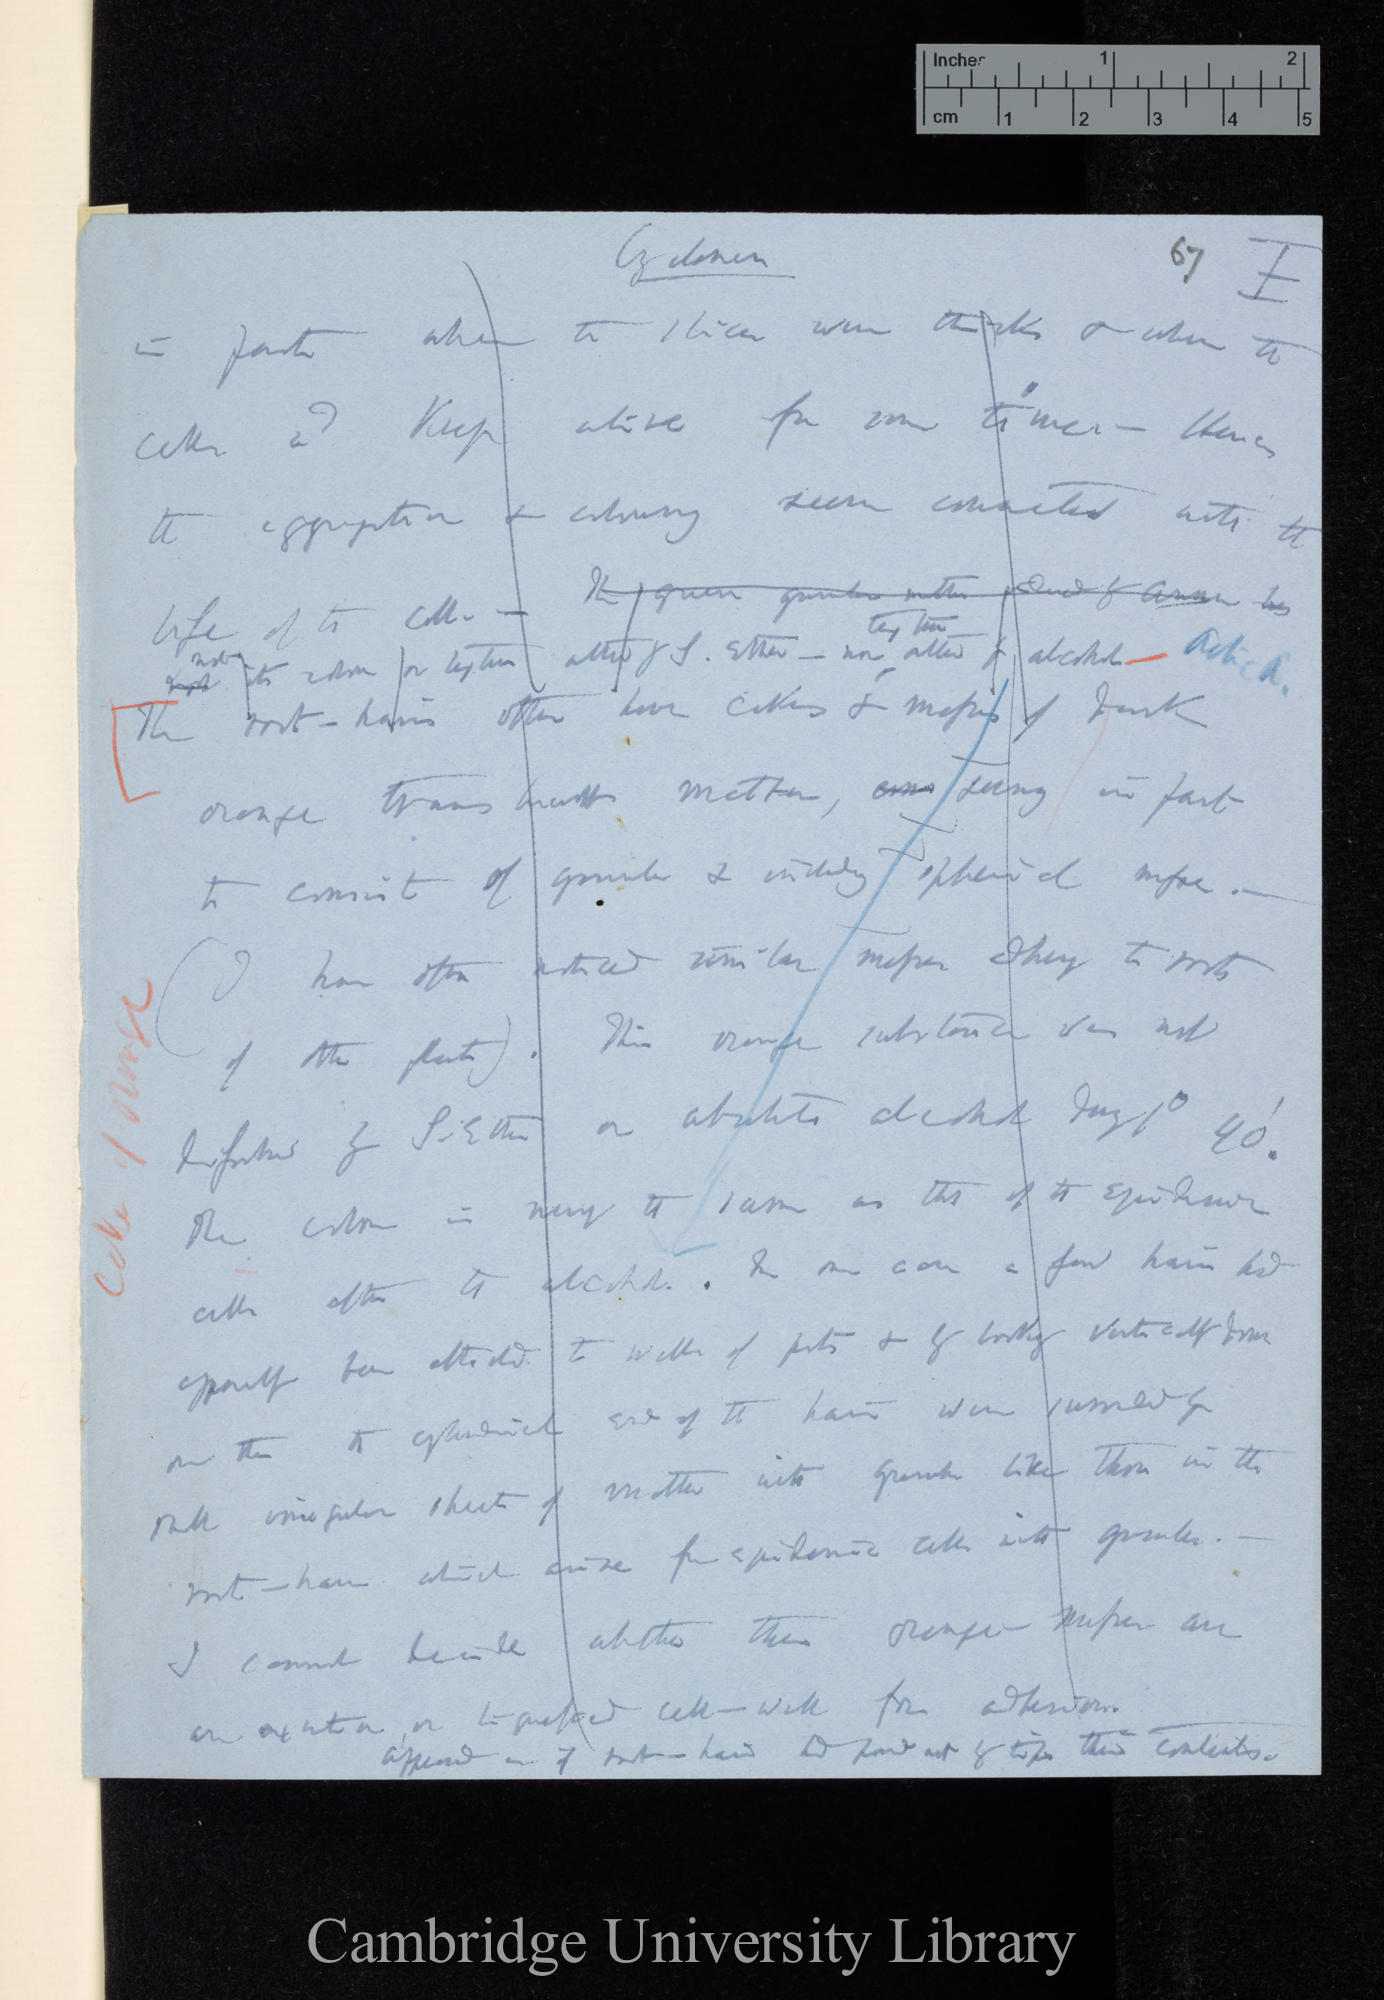 Inches 1 2
cm 1 2 3 4 5
Cyclamen
67 I
in part when the slices were thick & when the
cells were kept alive for some time — Hence
the aggregation & colouring seem connected with the
life of the cell. — The green granular matter
not its colour or texture altered by S. Ether — nor texture altered by alcohol — Article
The root-hairs often have cakes & masses of dark
orange translucent matter, seeming in part
to consist of granules & including spherical masses. —
(I have often noticed similar masses adhering to roots
of other plants). This orange substance was not
dissolved by S. Ether or absolute alcohol during 1° 40'.
The colour is nearly the same as that of the epidermic
cells after the alcohol. In one case a few hairs had
apparently been attached to walls of pots & by looking vertically down
on them the cylindrical end of the hairs were surrounded by
small irregular sheets of matter with granules like those in the
root-hairs which arise from epidermic cells with granules. —
I cannot decide whether these orange masses are
an excretion, or liquefied cell-wall for adhesion.
appeared as if root-hairs had poured out by tips their contents.
Cake of orange
Cambridge University Library